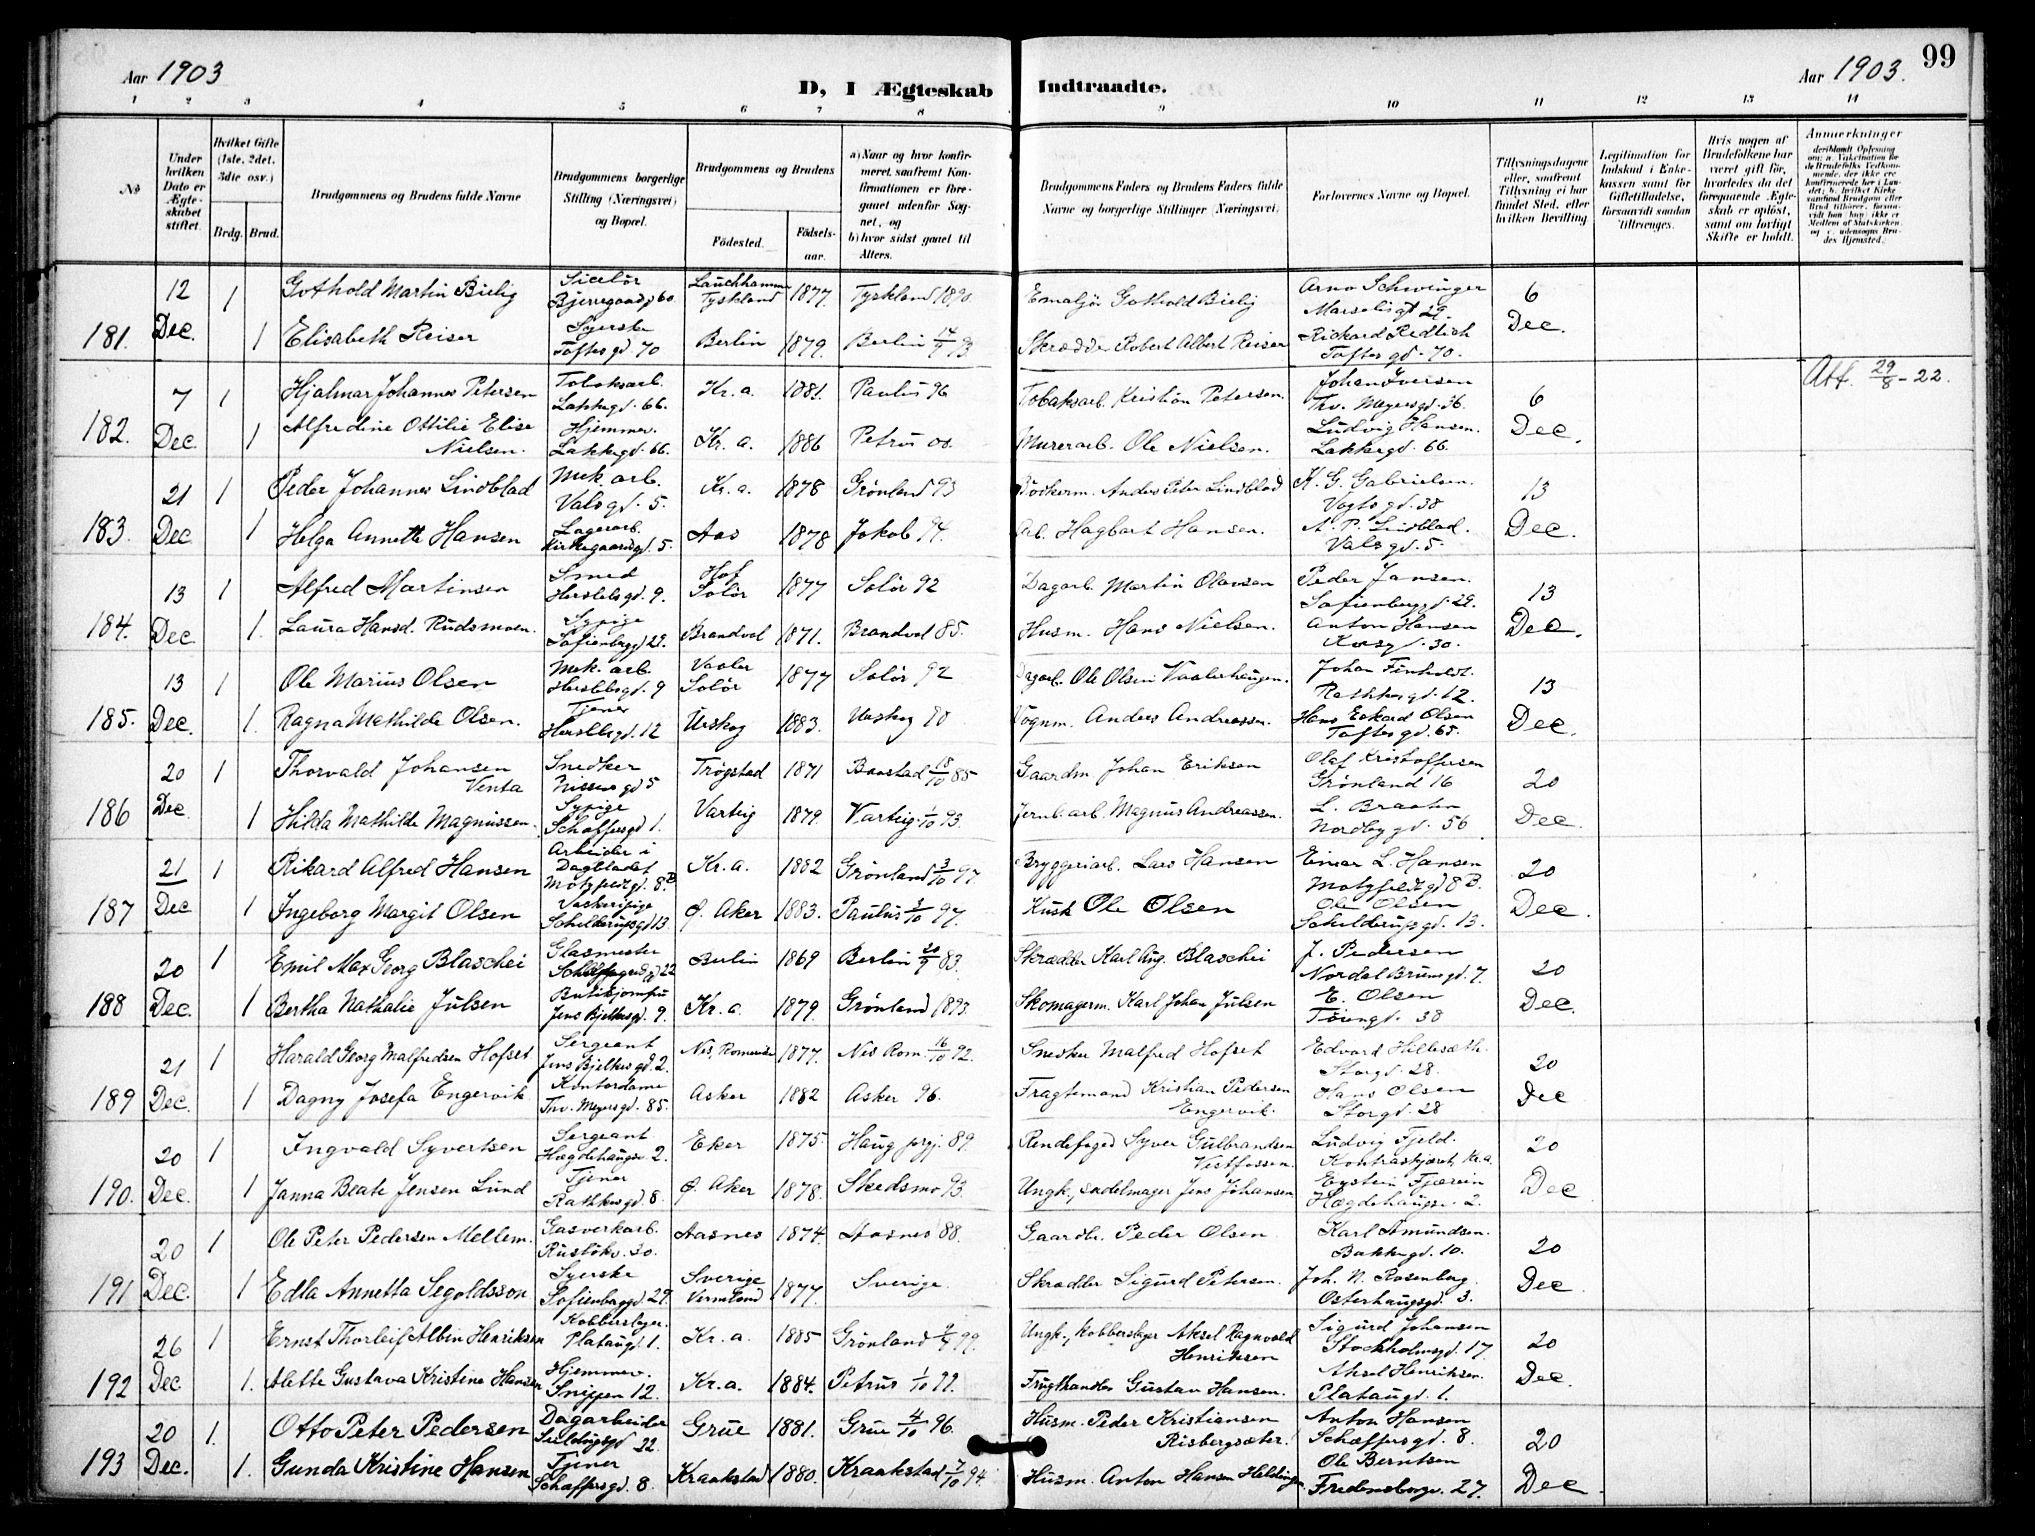 Aar 1903
D, I Ægteskab Indtraadte.
Aar 1903.
99
1 2 3 4 5 6 7 8 9 10 11 12 13 14
No
Under hvilken Dato er Ægteskabet stiftet.
Hvilket Gifte (1ste, 2det, 3die osv.)
Brdg. Brud.
Brudgommens og Brudens fulde Navne
Brudgommens borgerlige Stilling (Næringsvei) og Bopæl.
Brudgommens og Brudens
Fødested. Fødselsaar.
a) Naar og hvor konfirmeret, saafremt Konfirmationen er foregaaet udenfor Sognet, og
b) hvor sidst gaaet til Alters.
Brudgommens Faders og Brudens Faders fulde Navne og borgerlige Stillinger (Næringsvei)
Forlovernes Navne og Bopæl.
Tillysningsdagene eller, saafremt Tillysning ei har fundet Sted, efter hvilken Bevilling
Legitimation for Indskud i Enkekassen samt for Giftetilladelse, forsaavidt saadan tiltrænges.
Hvis nogen af Brudefolkene har været gift før, hvorledes da det foregaaende Ægteskab er opløst, samt om lovligt Skifte er holdt.
Anmerkninger
181. 12 Dec. 1 Gothold Martin Bielig Bjerregaardsgd 60 Lauchhammer Tyskland 1877. Tyskland 1890. Gothold Bielig Arno Schwinger Marselisgt 29. 6 Dec.
1 Elisabeth Reiser Syerske Toftesgd. 70 Berlin 1879. Berlin 14/9 93 Skrædder Robert Albert Reiser Rickard Redlich Toftesgd. 70.
182. 7 Dec. 1 Hjalmar Johannes Petersen Tobaksarb. Lakkegd. 66. Kr.a. 1881. Paulus 96 Tobaksarb. Kristian Petersen. Johan Iversen Thv. Meyersgd. 36. 6 Dec. Att. 29/8-22.
1 Alfredine Ottilie Elise Nielsen. Hjemmev. Lakkegd. 66. Kr.a. 1886 Petrus 00. Murerarb. Ole Nielsen. Ludvig Hansen. Lakkegd. 66.
183. 21 Dec 1 Peder Johannes Lindblad Mek. arb. Valsgd. 5. Kr.a. 1878 Grønland 93 Anders Peter Lindblad K. G. Gabrielsen. Vogtsgd. 38 13 Dec.
1 Helga Annette Hansen Lagerarb. Kirkegaardsgd. 5. Aas 1878 Jakob 94. Arb. Hagbart Hansen. A. P. Lindblad. Valsgd. 5.
184. 13 Dec. 1 Alfred Martinsen Smed Herslebsgd. 9. Hof Solør 1877 Solør 92 Dagarb. Martin Olavsen Peder Jansen. Sofienberggd. 29. 13 Dec.
1. Laura Hansd. Rudsmoen. Sypige Sofienbergd 29. Brandvol 1871. Brandvol 85. Husm. Hans Nielsen. Anton Hansen 30.
185. 13 Dec. 1 Ole Marius Olsen Mek. arb. Herslebsgd. 9 Vaaler Solør 1877 Solør 92 Dagarb. Ole Olsen Vaalerhaugen. Johan Finholdt. Rathkesgd. 12. 13 Dec.
1. Ragna Mathilde Olsen. Tjener Herslebsgd. 12 Urskog 1883. Urskog 98 Vognm. Anders Andreassen. Hans Eckard Olsen Toftesgd. 65.
186 20 Dec 1 Thorvald Johansen Venta Snedker Nissensgd 5 Trøgstad 1871 Baastad 18/10 85 Gaardm. Johan Eriksen Olaf Kristoffersen Grønland 16 20 Dec.
1 Hilda Mathilde Magnussen. Sypige Schaffersgd 1. Varteig 1879. Varteig 1/10 93. Jernb. arb. Magnus Andreassen. L. Braaten Nordbygd. 56
187 21 Dec 1 Rikard Alfred Hansen Arbeider i Dagbladet Motzfeldtgd. 8 B Kr.a. 1882 Grønland 3/10 97. Bryggeriarb. Lars Hansen Einar L. Hansen Motzfeldtgd 8 B. 20 Dec.
1 Ingeborg Margit Olsen Vaskeripige Schilderupsgd 13 Ø. Aker 1883. Paulus 3/10 97. Kusk Ole Olsen Ole Olsen Schilderupsgd. 13.
188 20 Dec. 1 Emil Max Georg Blaschei Glasmester 22 Berlin 1869 Berlin 20/9 83. Skrædder Karl Aug. Blaschei J. Pedersen Nordal Brunsgd. 7. 20 Dec.
1 Bertha Nathalie Julsen Butikjomfru Jens Bjelkesgd. 9. Kr.a. 1879. Grønland 1893. Skomagerm. Karl Johan Julsen E. Olsen Tøiengd. 38
189 21 Dec. 1 Harald Georg Malfredsen Hofset Sergeant Jens Bjelkesgd. 2. Nes, Romerike 1877. Nes Rom. 16/10 92. Snedker Malfred Hofset Edvard Hillesæth. Storgd. 28. 20 Dec
1 Dagny Josefa Engervik Kontordame Thv. Meyersgd. 85. Asker 1882 Asker 96. Fragtemand Kristian Pedersen Engervik. Hans Olsen Storgd. 28
190. 20 Dec. 1 Ingvald Syvertsen Sergeant Hægdehaugsv. 2. Eker 1875. Haug prgj. 89. Rendefoged Syver Gulbrandsen Vestfossen. Ludvig Fjeld. Kontraskjæret, Kr.a. 20 Dec
1 Janna Beate Jensen Lund Tjener Rathkesgd. 8. Ø. Aker 1878. Skedsmo 93. Ungk., sadelmager Jens Johansen Eystein Fjærein Hægdehaugsv. 2.
191 20 Dec. 1 Ole Peter Pedersen Mellem. Gasverkarb. Rusløkv. 30. Aasnes 1874. Aasnes 88. Gaardbr. Peder Olsen Karl Amundsen. Bakkegd. 10. 20 Dec.
1 Edla Annetta Segoldsson Syerske Sofienberggd 29. Sverige Vermland 1877. Sverige. Skrædder Sigurd Petersen. Joh. N. Rosenberg. Osterhausgd. 3.
192 26 Dec 1 Ernst Thorleif Albin Henriksen Kobberslager. Plataugd. 1. Kr.a. 1885 Grønland 99. Ungk., kobberslager Aksel Ragnvald Henriksen Sigurd Johansen Stockholmsgd. 17. 20 Dec.
1. Alette Gustava Kristine Hansen Hjemmev. Snippen 12. Kr.a. 1884. Petrus 1/10 99. Frugthandler Gustav Hansen. Aksel Henriksen. Plataugd. 1.
193 20 Dec. 1. Otto Peter Pedersen Dagarbeider 22. Grue 1881. Grue 4/10 96. Husm. Peder Kristiansen Risbergsæter. Anton Hansen Schæffersgd. 8. 20 Dec
1. Gunda Kristine Hansen Tjener Schæffersgd. 8. Kraakstad 1880. Kraakstad 7/10 94 Husm. Anton Hansen Ole Berntsen Fredensborgv. 27.